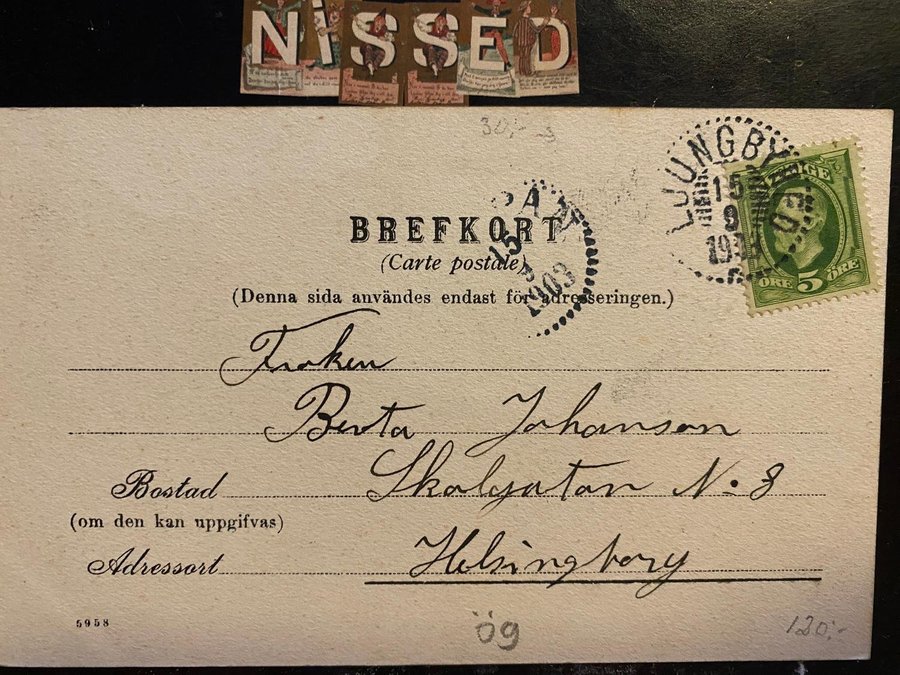 NISSED
30:-
LJUNGBYHED
15
9
1903
SVERIGE
ÖRE 5 ÖRE
15
1903
BREFKORT
(Carte postale)
(Denna sida användes endast för adresseringen.)
Froken
Berta Johanson
Bostad Skolgatan N. 8
(om den kan uppgifvas)
Adressort Helsingborg
5958
ög
120:-